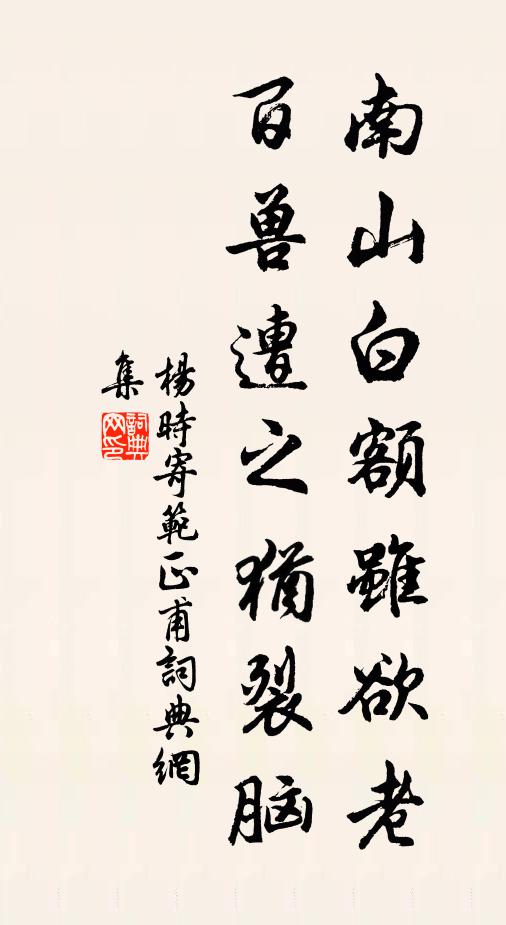 南山白額雖欲老
百兽遭之猶裂脑
楊時寄範正甫詞典網
集
詞典
网印